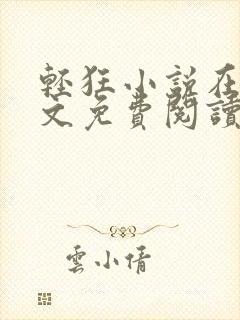 輕狂小說在
文免費閱讀
雲小倩